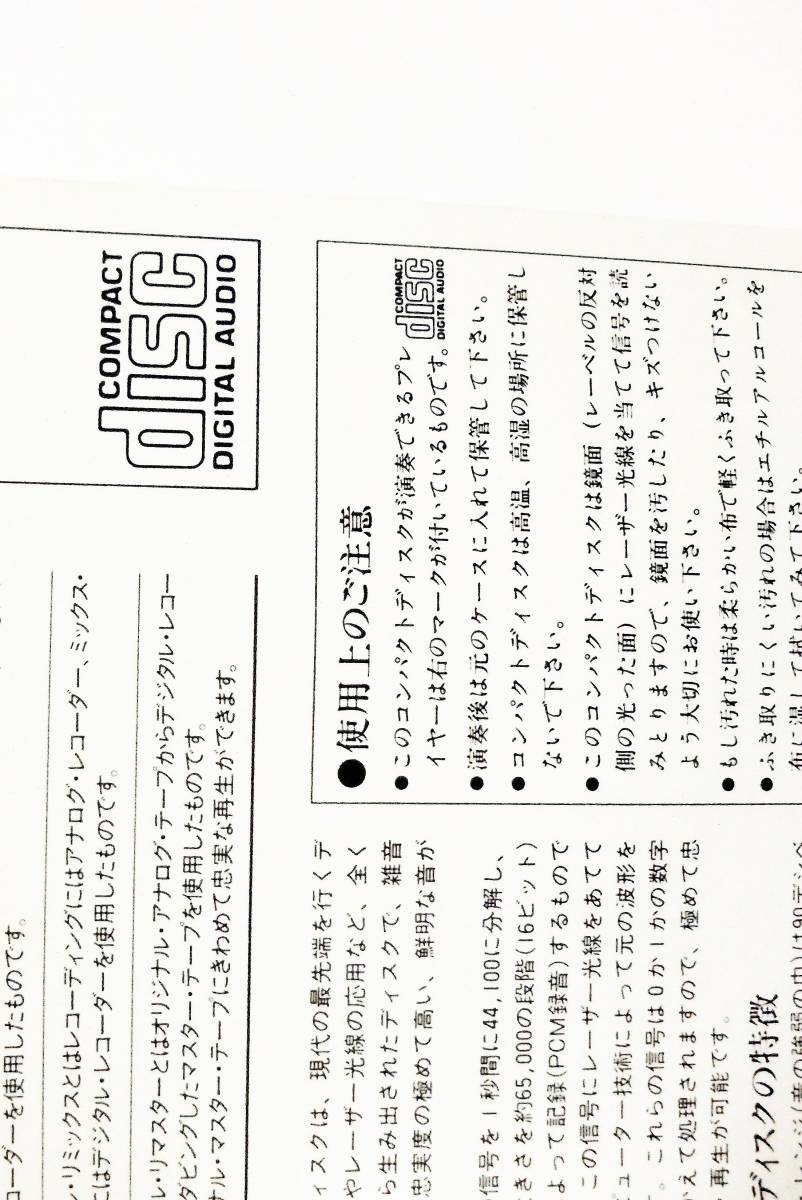 コーダーを使用したものです。
ル・リミックスとはレコーディングにはアナログ・レコーダー、ミックス・
にはデジタル・レコーダーを使用したものです。
ル・リマスターとはオリジナル・アナログ・テープからデジタル・レコー
ダビングしたマスター・テープを使用したものです。
ナル・マスター・テープにきわめて忠実な再生ができます。
COMPACT
disc
DIGITAL AUDIO
ィスクは、現代の最先端を行くデ
やレーザー光線の応用など、全く
ら生み出されたディスクで、雑音
忠実度の極めて高い、鮮明な音が
信号を1秒間に44,100に分解し、
きさを約65,000の段階(16ビット)
よって記録(PCM録音)するもので
この信号にレーザー光線をあてて
ピューター技術によって元の波形を
。これらの信号は0か1かの数字
かえて処理されますので、極めて忠
再生が可能です。
ディスクの特徴
レンジ(音の強弱の巾)は90デシベ
●使用上のご注意
●このコンパクトディスクが演奏できるプレ
イヤーは右のマークが付いているものです。
COMPACT
disc
DIGITAL AUDIO
●演奏後は元のケースに入れて保管して下さい。
●コンパクトディスクは高温、高湿の場所に保管し
ないで下さい。
●このコンパクトディスクは鏡面（レーベルの反対
側の光った面）にレーザー光線を当てて信号を読
みとりますので、鏡面を汚したり、キズつけない
よう大切にお使い下さい。
●もし汚れた時は柔らかい布で軽くふき取って下さい。
●ふき取りにくい汚れの場合はエチルアルコールを
布に湿して拭いてみて下さい。